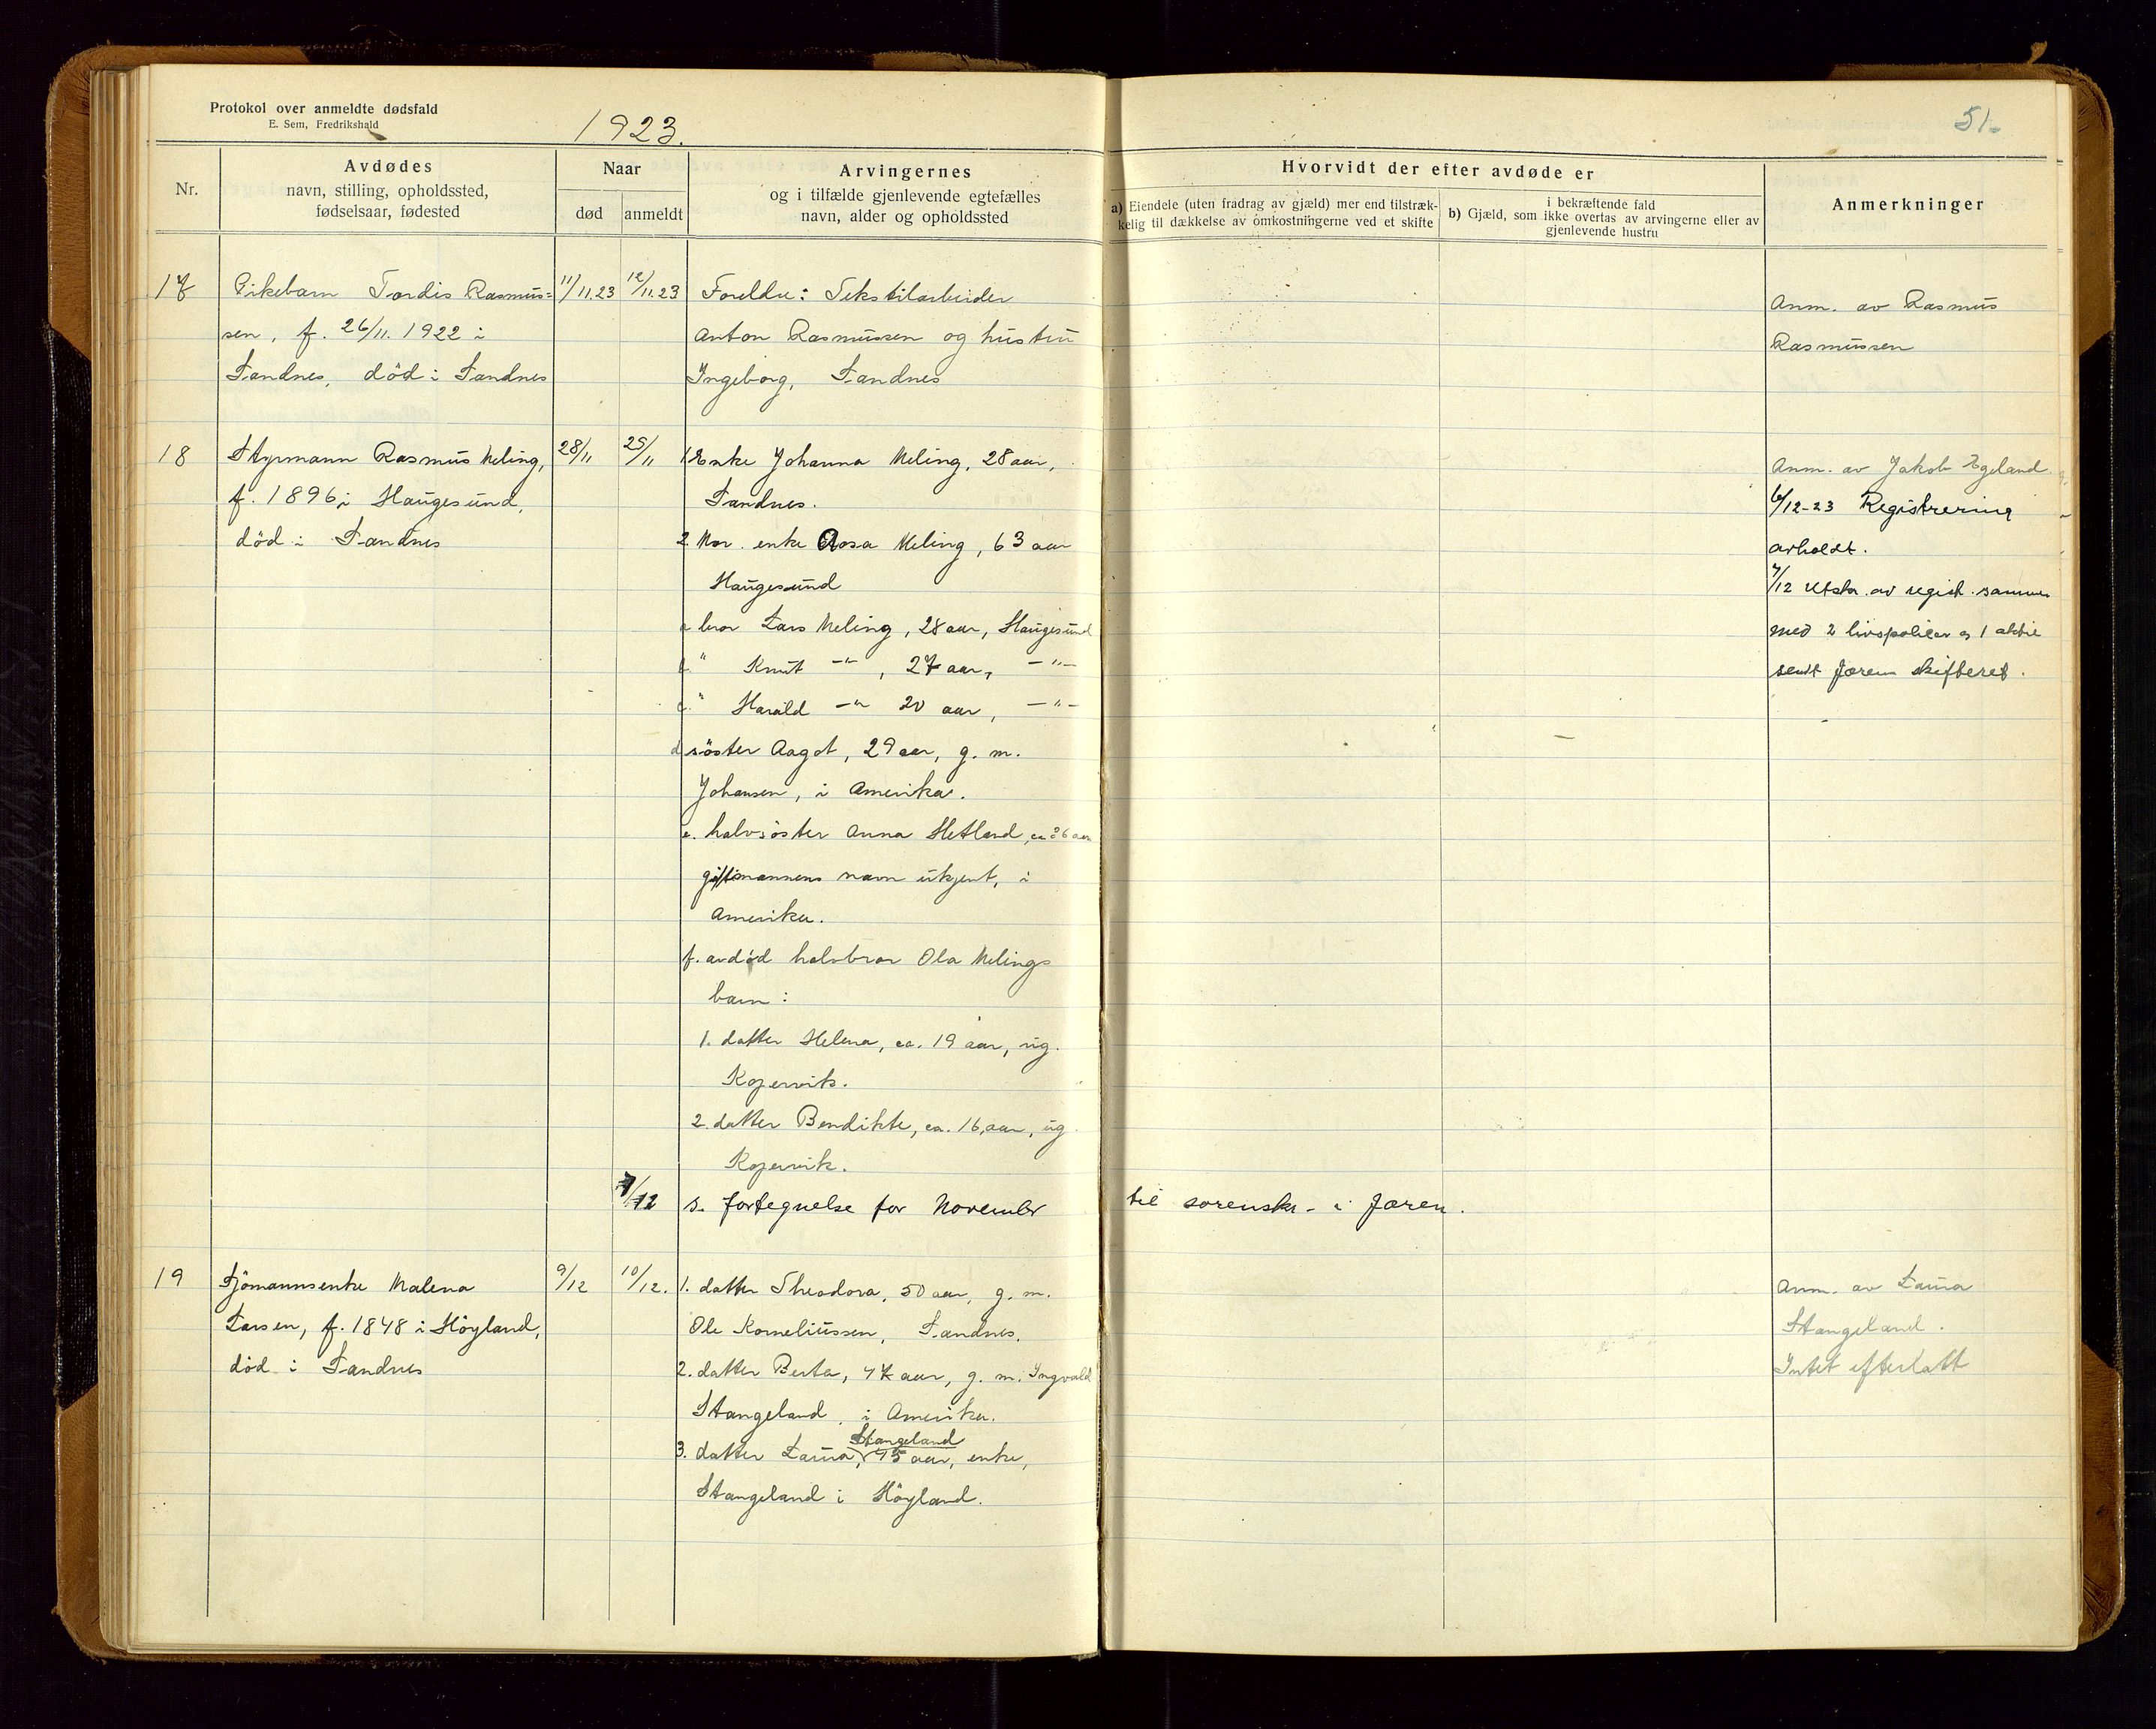 Protokol over anmeldte dødsfald
E. Sem, Fredrikshald
1923.
51.
Nr.
Avdødes
navn, stilling, opholdssted,
fødselsaar, fødested
Naar
død
anmeldt
Arvingernes
og i tilfælde gjenlevende egtefælles
navn, alder og opholdssted
Hvorvidt der efter avdøde er
a) Eiendele (uten fradrag av gjæld) mer end tilstræk-
kelig til dækkelse av omkostningerne ved et skifte
i bekræftende fald
b) Gjæld, som ikke overtas av arvingerne eller av
gjenlevende hustru
Anmerkninger
17
Pikebarn Tordis Rasmus=
sen, f. 26/11. 1922 i
Sandnes, död i Sandnes
11/11.23
12/11.23
Foreldre: Tekstilarbeider
Anton Rasmussen og hustru
Ingeborg, Sandnes
Anm. av Rasmus
Rasmussen
18
Styrmann Rasmus Meling,
f. 1896 i Haugesund,
död i Sandnes
28/11
29/11
1 Enke Johanna Meling, 28 aar,
Sandnes.
2. Mor. enke Rosa Meling, 63 aar
Haugesund
a bror Lars Meling, 28 aar, Haugesund
b. " Knut -"- , 27 aar, -"-
c. " Harald -"- 20 aar, -"-
d söster Aagot, 29 aar, g. m.
Johansen, i Amerika.
e. halvsöster Anna Hetland, ca 36 aar
gift mannens navn ukjent, i
Amerika.
f. avdöd halvbror Ola Melings
barn:
1. datter Helena, ca. 19 aar, ug.
Kopervik.
2. datter Bendikte, ca. 16 aar, ug.
Kopervik.
Anm. av Jakob Egeland.
6/12-23 Registrering
avholdt.
7/12 Utskr. av regist. sammen
med 2 livspoliser og 1 aktie
sendt Jæren skifteret.
7/12 s. fortegnelse for November til sorenskr. i Jæren.
19
Sjömannsenke Malena
Larsen, f. 1848 i Höyland,
död i Sandnes
9/12
10/12.
1. datter Theodora, 50 aar, g. m.
Ole Korneliussen, Sandnes.
2. datter Berta, 47 aar, g. m. Ingvald
Stangeland, i Amerika.
Stangeland
3. datter Laura, 45 aar, enke,
Stangeland i Höyland.
Anm. av Laura
Stangeland.
Intet efterlatt